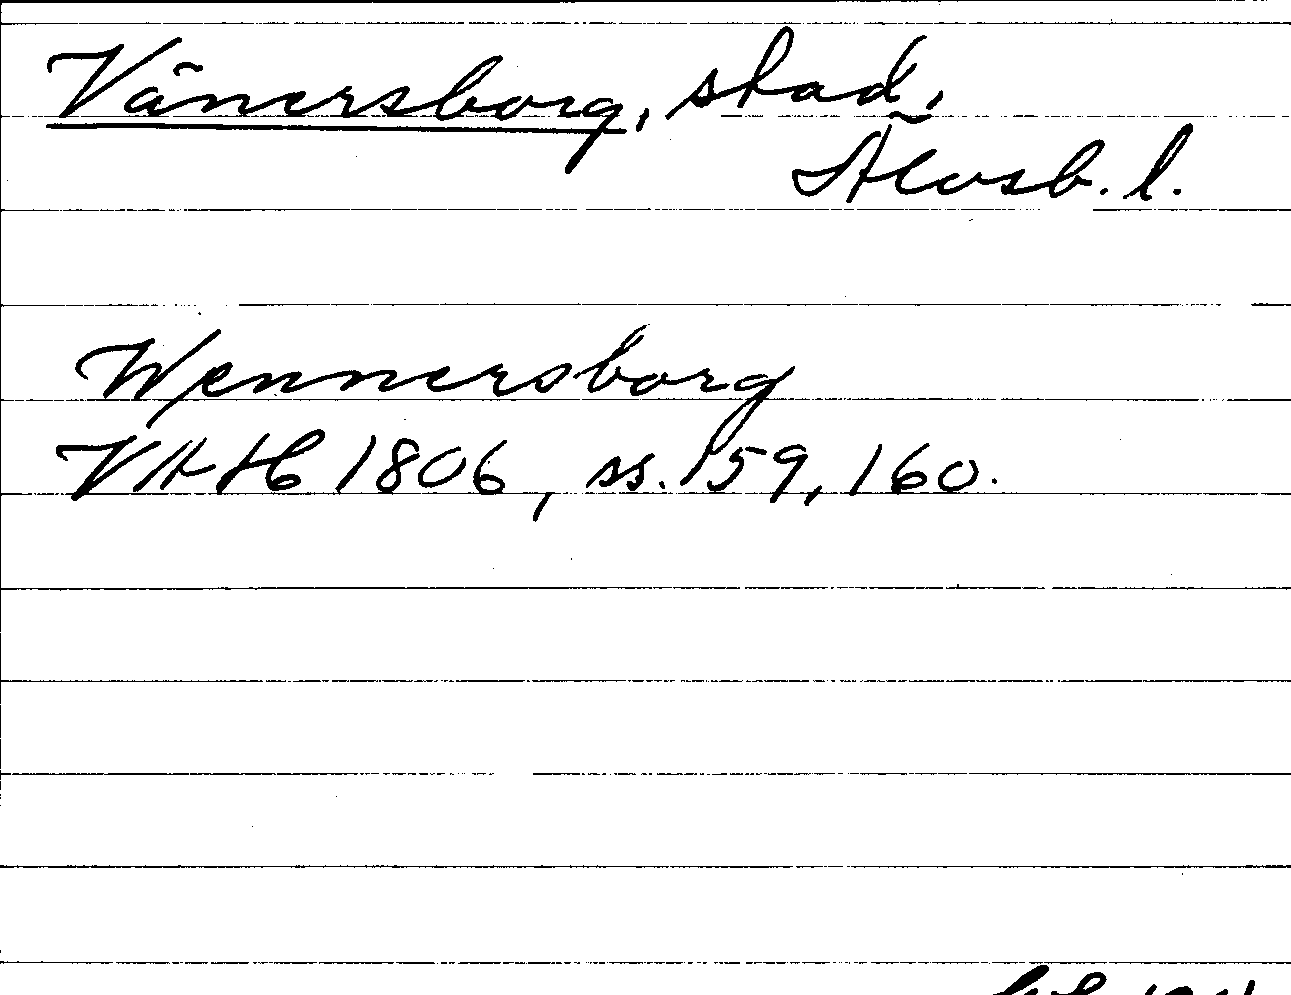 Vänersborg, stad,
Älvsb. l.
Wennersborg
VAH 1806, ss. 159, 160.